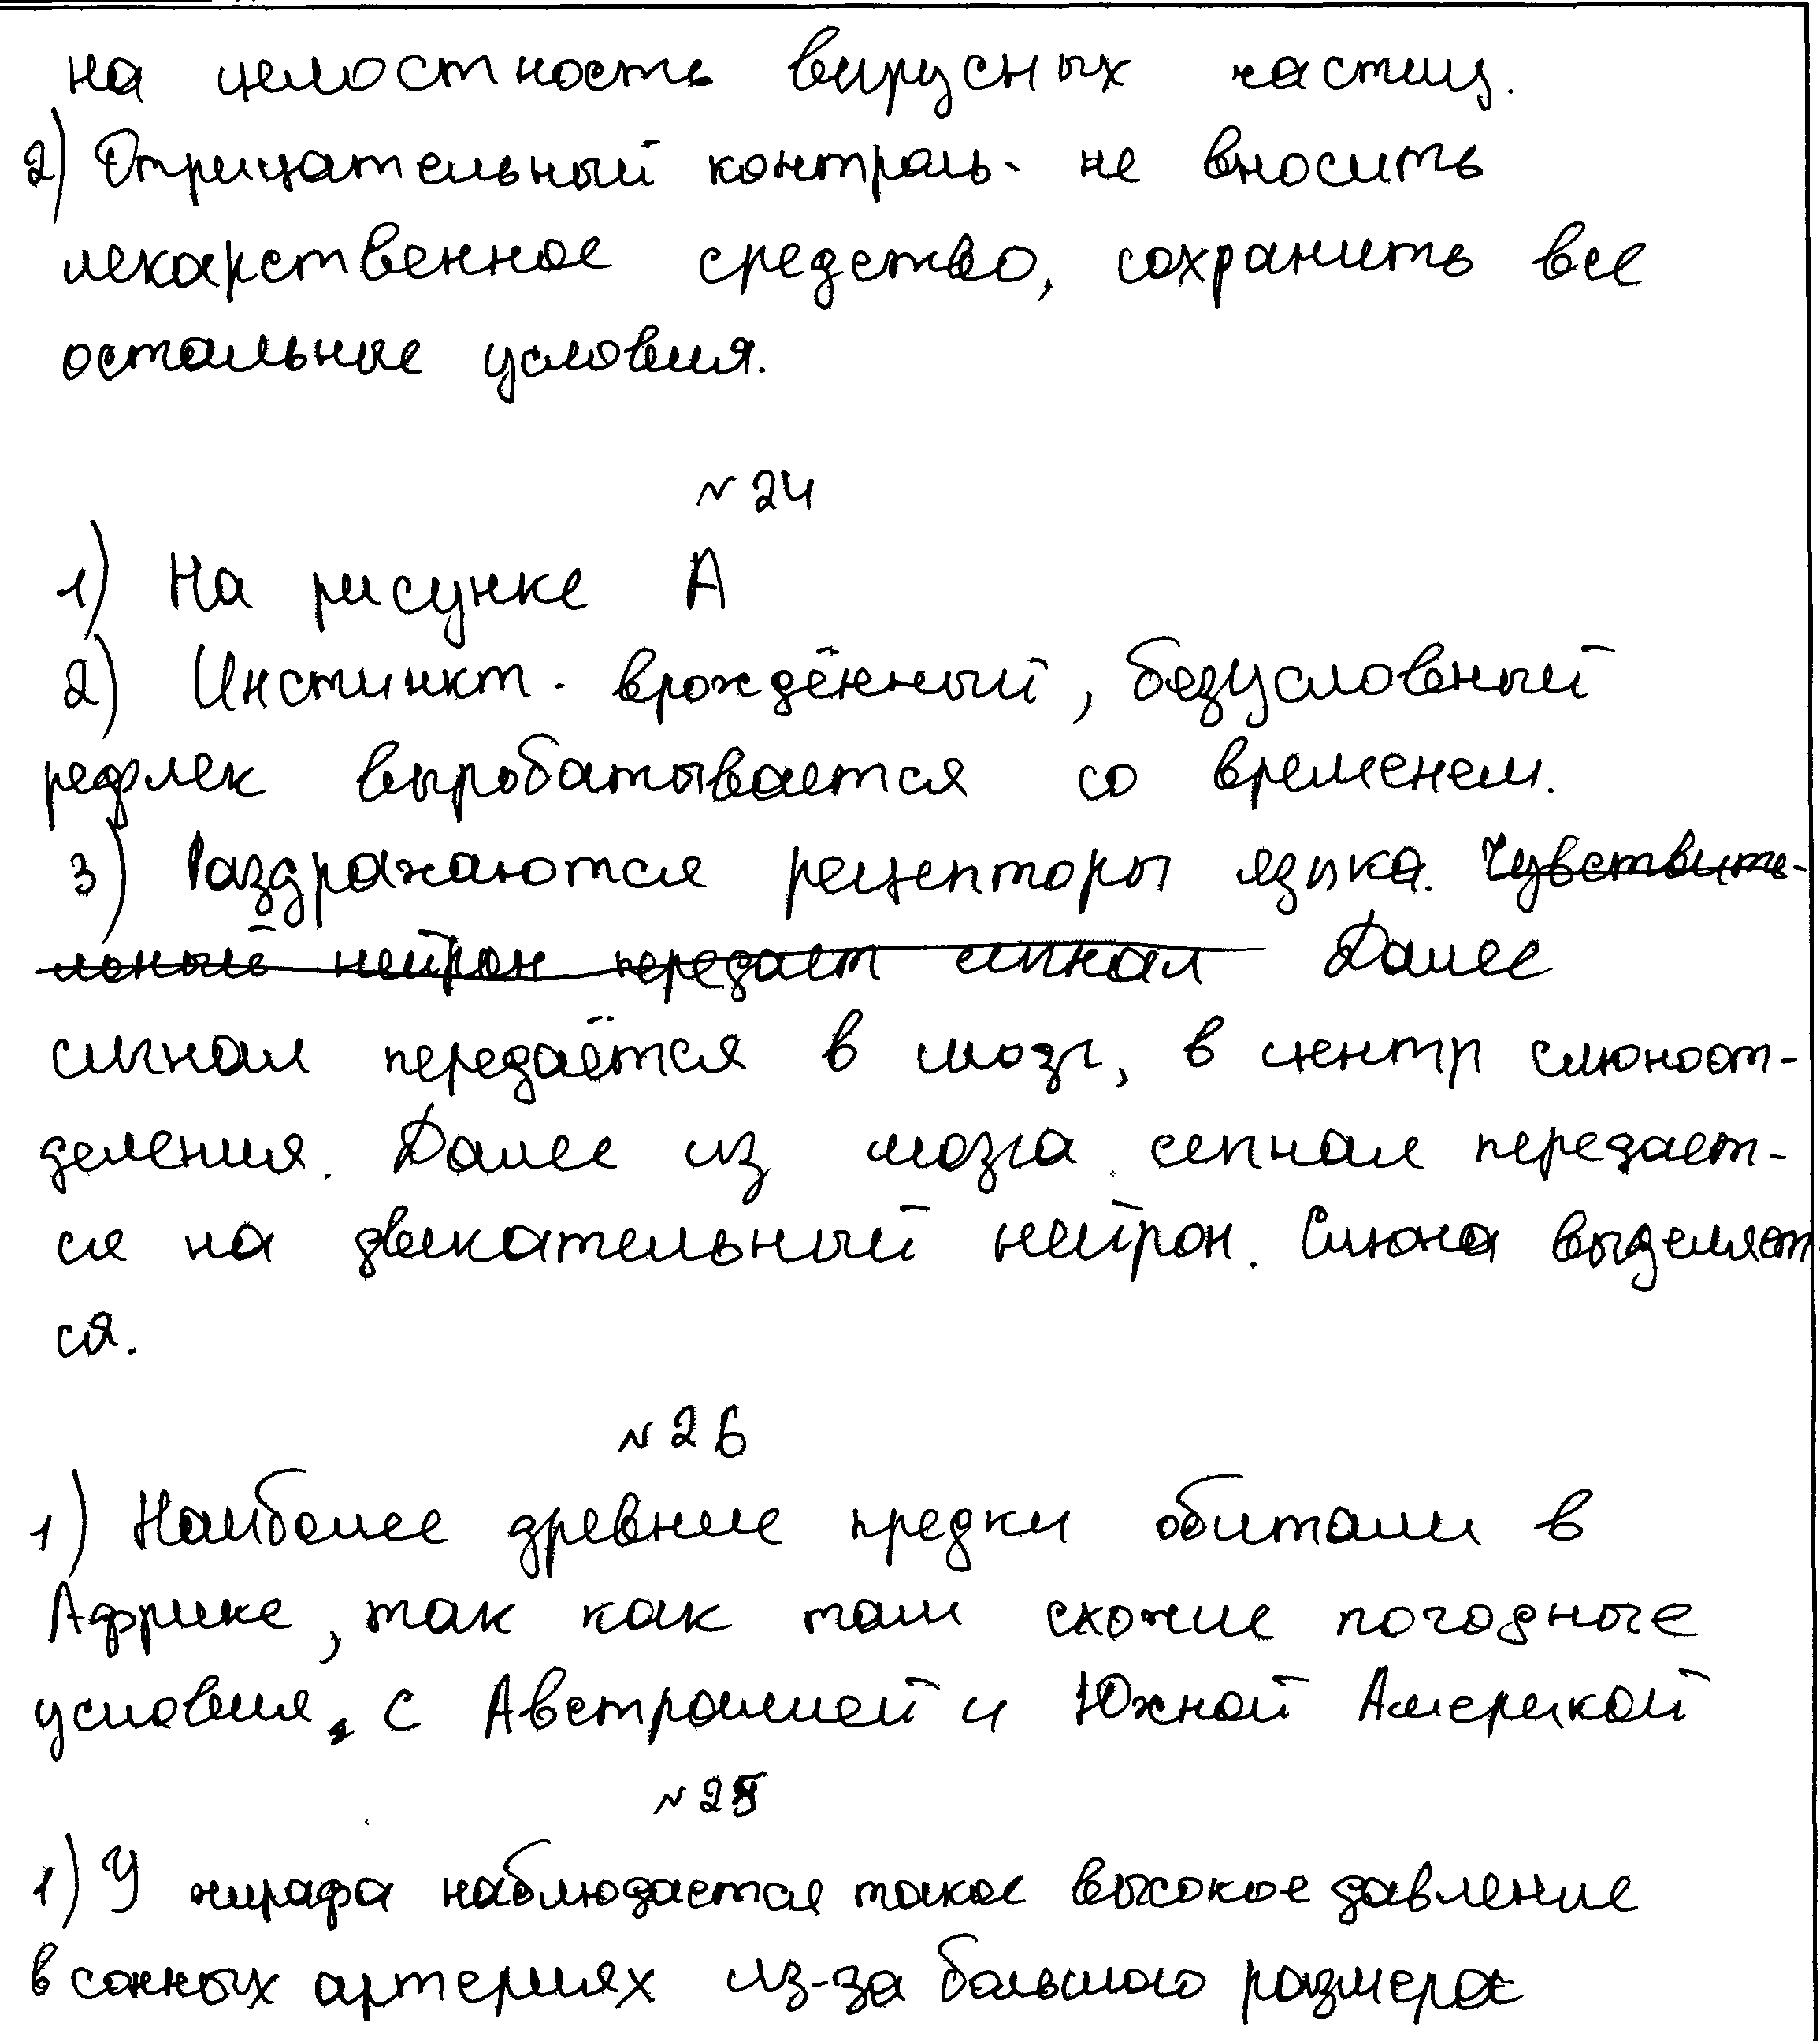 на целостность вирусных частиц.
2) Отрицательный контроль - не вносить
лекарственное средство, сохранить все
остальные условия.
№ 24
1) На рисунке А
2) Инстинкт - врождённый, безусловный
рефлек выробатывается со временем.
3) Раздражаются рецепторы языка. Чувствите-
льный нейрон передает сигнал Далее
сигнал передаётся в мозг, в центр слюноот-
деления. Далее из мозга сигнал передает-
ся на двигательный нейрон. Слюна выделяет
ся.
№ 26
1) Наиболее древние предки обитали в
Африке, так как там схожие погодные
условия, с Австралией и Южной Америкой
№ 25
1) У жирафа наблюдается такое высокое давление
в сонных артериях из-за большого размера